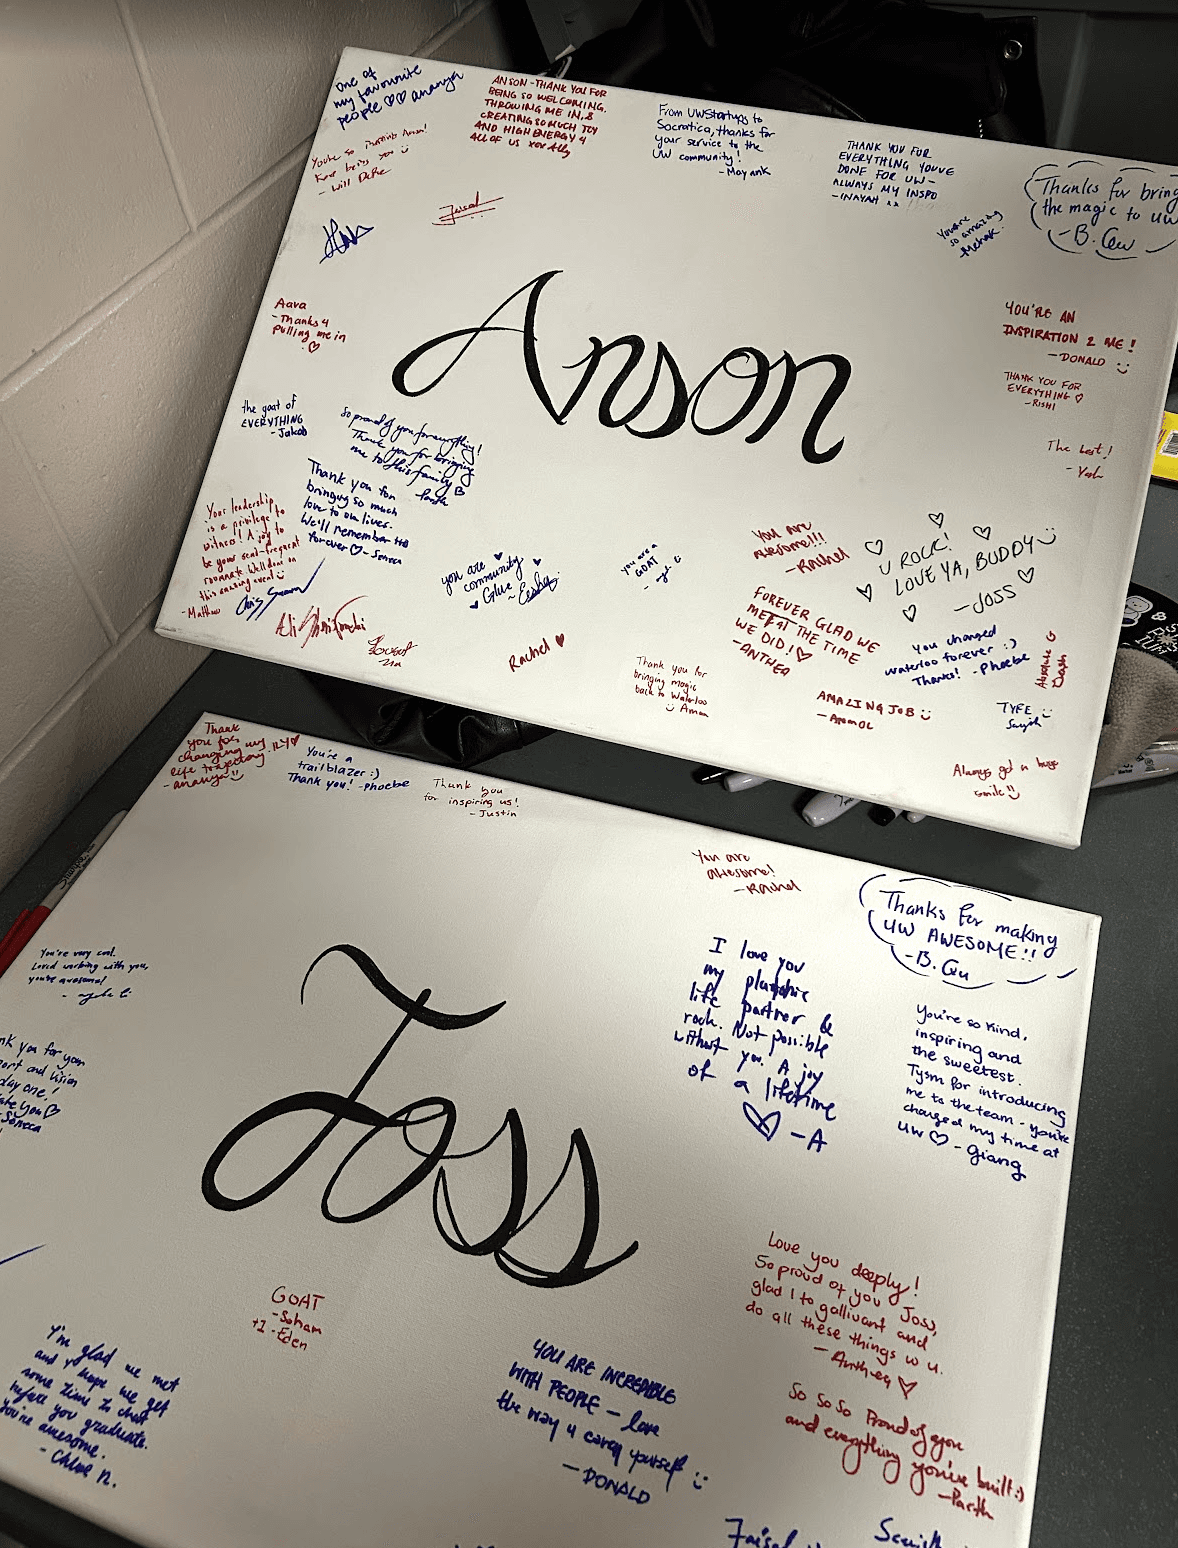 One of
my favourite
people ♡♡ ananya
ANSON - THANK YOU FOR
BEING SO WELCOMING,
THROWING ME IN, &
CREATING SO MUCH JOY
AND HIGH ENERGY 4
ALL OF US xox Ally
From UWStartups to
Socratica, thanks for
your service to the
UW community!
- Mayank
THANK YOU FOR
EVERYTHING YOU'VE
DONE FOR UW -
ALWAYS MY INSPO
- INAYAH
Thanks for bring
the magic to UW
- B. Qu
You're so
Keep being you
- Will
You are
so amazing
- Mehak
Anson
Aava
- Thanks 4
pulling me in
♡
YOU'RE AN
INSPIRATION 2 ME!
- DONALD
THANK YOU FOR
EVERYTHING ♡
- RISHI
The best!
the goat of
EVERYTHING
- Jakob
So proud of you for everything!
Thank you for bringing
me to this family
Parth
Thank you for
bringing so much
love to our lives.
We'll remember
forever ♡ - Seneca
Your leadership
is a privilege to
witness! A joy to
be your semi-frequent
roommate. Well done on
this amazing event
- Matthew
you are
community
Glue
~ Eesha
you are a
GOAT
You are
awesome!!!
- Rachel
U ROCK!
LOVE YA, BUDDY
- JOSS
FOREVER GLAD WE
MET AT THE TIME
WE DID! ♡
- ANTHEA
You changed
waterloo forever :)
Thanks! - Phoebe
Absolute G
Rachel ♥
Thank you for
bringing magic
back to Waterloo
AMAZING JOB
- ANMOL
Always got a huge
smile
Thank
you for
changing my
life trajectory. ILY♡
- ananya
You're a
trailblazer :)
Thank you! - Phoebe
Thank you
for inspiring us!
- Justin
You are
awesome!
- Rachel
Thanks for making
UW AWESOME!!
- B. Qu
You're very cool.
Loved working with you,
you're awesome!
I love you
my platonic
life partner &
rock. Not possible
without you. A joy
of a lifetime
♡ - A
You're so kind,
inspiring and
the sweetest.
Tysm for introducing
me to the team - you've
changed my time at
UW ♡ - Giang
you for your
and vision
day one!
you ♡
Seneca
Joss
Love you deeply!
So proud of you Joss,
glad I to gallivant and
do all these things w u.
- Anthea ♡
GOAT
- Soham
+1 - Eden
I'm glad we met
and I hope we get
some time to chat
before you graduate.
You're awesome.
- Chloe N.
YOU ARE INCREDIBLE
WITH PEOPLE - love
the way u carry yourself :)
- DONALD
So so so Proud of you
and everything you've built :)
- Parth
Faisal
Sharpie